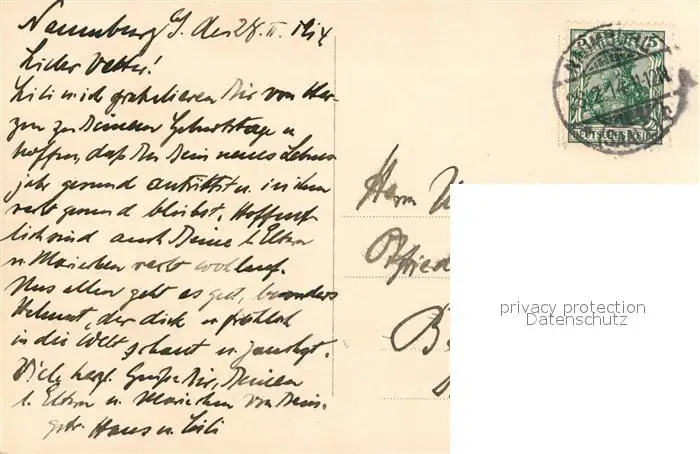 Naumburg a/S. den 28. II. 1914
Lieber Vetter!
Lili u. ich gratulieren Dir von Her-
zen zu Deinem Geburtstage u.
hoffen, daß Du Dein neues Lebens
jahr gesund antrittst u. in ihm
recht gesund bleibst. Hoffent
lich sind auch Deine l. Eltern
u. Mariechen recht wohlauf.
Uns allen geht es gut, besonders
Helmut, der dick u. fröhlich
in die Welt schaut u. jauchzt.
Viele herzl. Grüße Dir, Deinen
l. Eltern u. Mariechen von Deinen
getr. Hans u. Lili
NAUMBURG
28.2.14.11-12V
(SAALE)
5
DEUTSCHES REICH
Herrn
privacy protection
Datenschutz